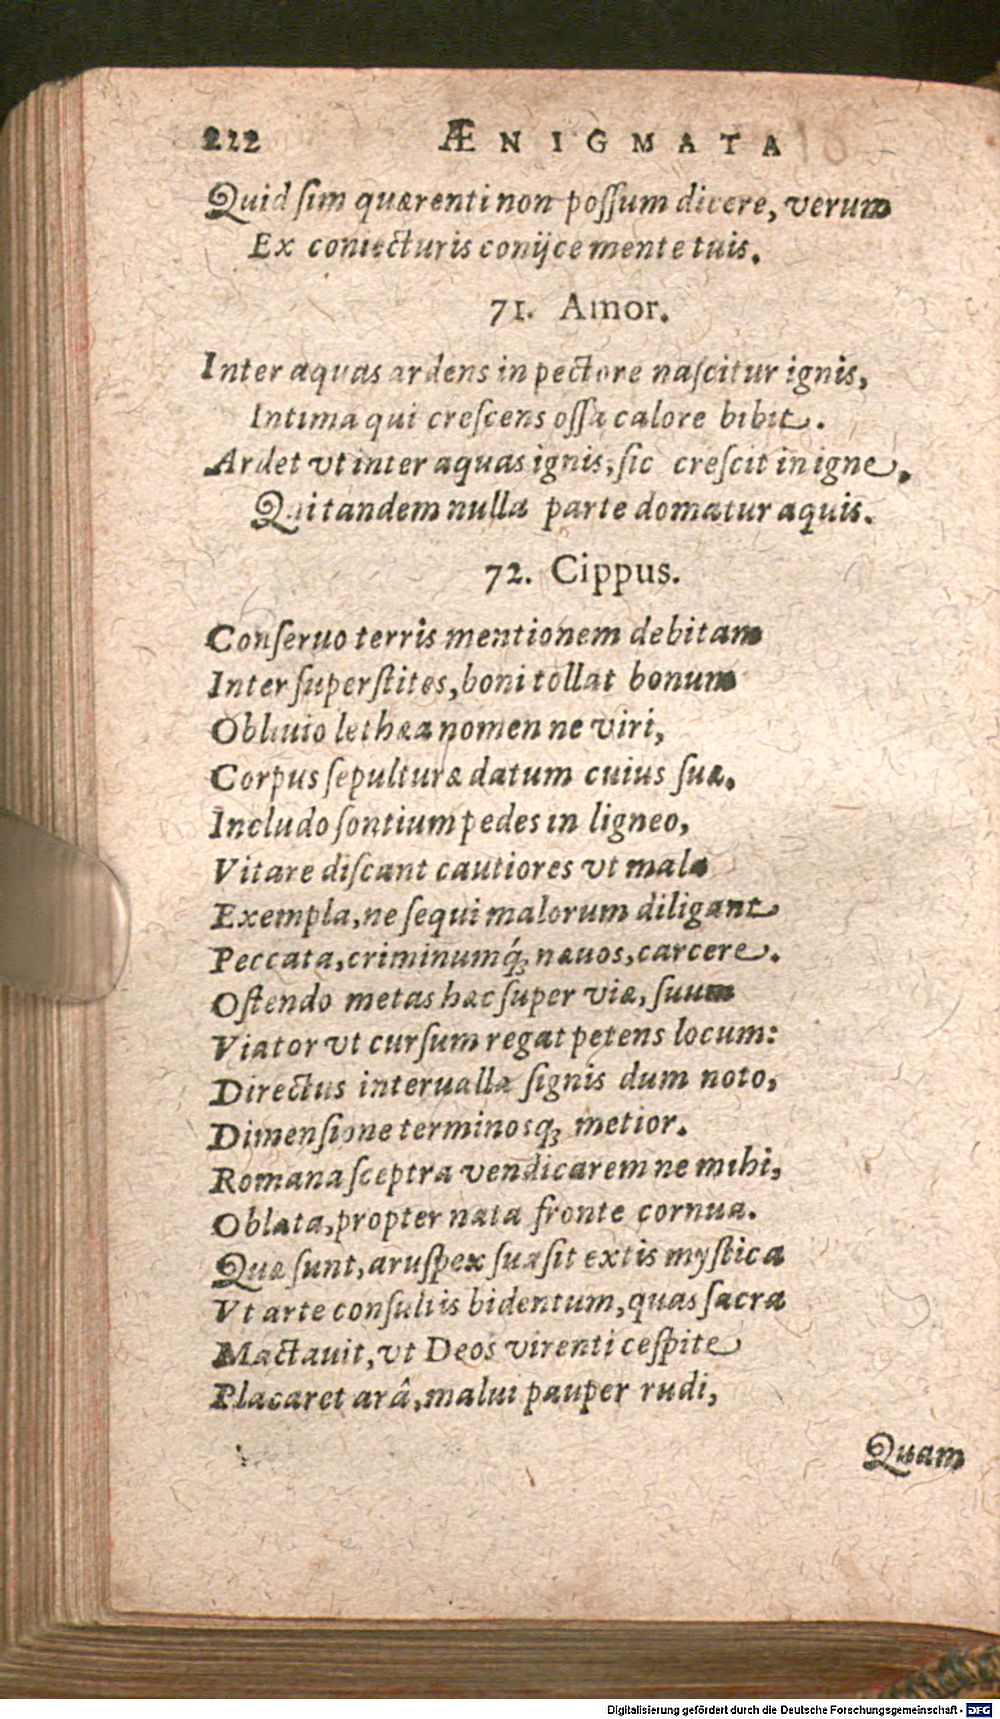 222 ÆNIGMATA
Quid ſim quærenti non poſſum dicere, verum
Ex coniecturis conijce mente tuis.
71. Amor.
Inter aquas ardens in pectore naſcitur ignis,
Intima qui creſcens oſſa calore bibit.
Ardet vt inter aquas ignis, ſic creſcit in igne,
Qui tandem nulla parte domatur aquis.
72. Cippus.
Conſeruo terris mentionem debitam
Inter ſuperſtites, boni tollat bonum
Obliuio lethæa nomen ne viri,
Corpus ſepulturæ datum cuius ſuæ.
Includo ſontium pedes in ligneo,
Vitare diſcant cautiores vt mala
Exempla, ne ſequi malorum diligant
Peccata, criminumq́; næuos, carcere.
Oſtendo metas hæc ſuper viæ, ſuum
Viator vt curſum regat petens locum:
Directus interualla ſignis dum noto,
Dimenſione terminosq; metior.
Romana ſceptra vendicarem ne mihi,
Oblata, propter nata fronte cornua.
Quæ ſunt, aruſpex ſuaſit extis myſtica
Vt arte conſultis bidentum, quas ſacra
Mactauit, vt Deos virenti ceſpite
Placaret arâ, malui pauper rudi,
Quam
Digitalisierung gefördert durch die Deutsche Forschungsgemeinschaft - DFG